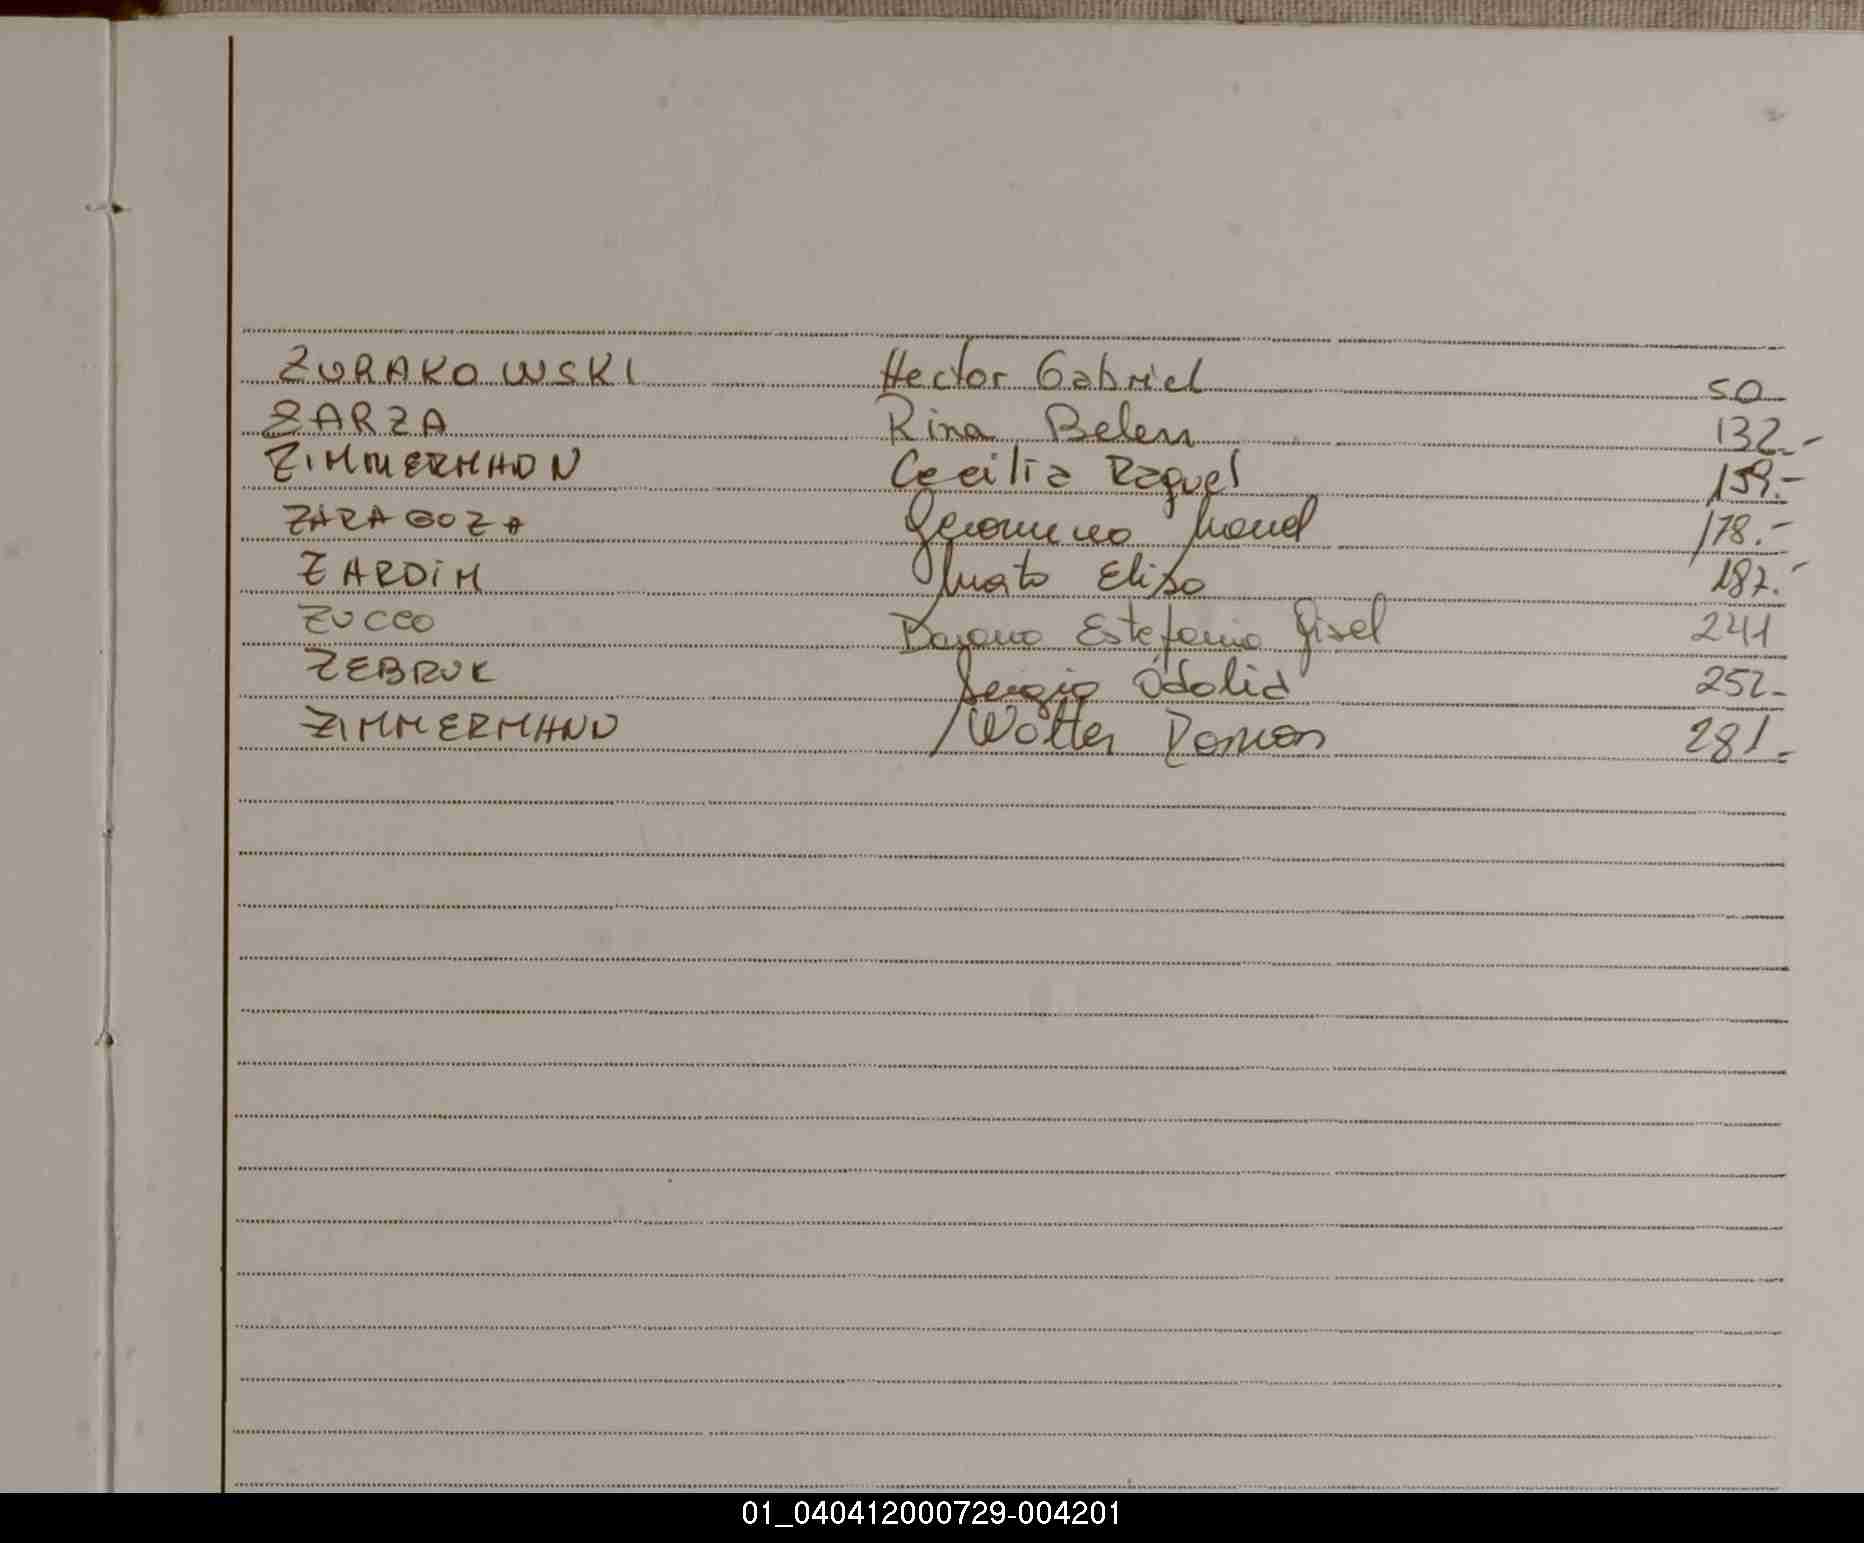 ZURAKOWSKI Hector Gabriel 50
ZARZA Rina Belen 132.-
ZIMMERMANN Cecilia Raquel 159.-
ZARAGOZA Geronimo 178.-
ZARDiM Elisa 187.-
ZUCCO Estefania Gisel 241
ZEBRUK Sergio Odolid 252-
ZIMMERMANN Walter Ramon 281.-
01_040412000729-004201